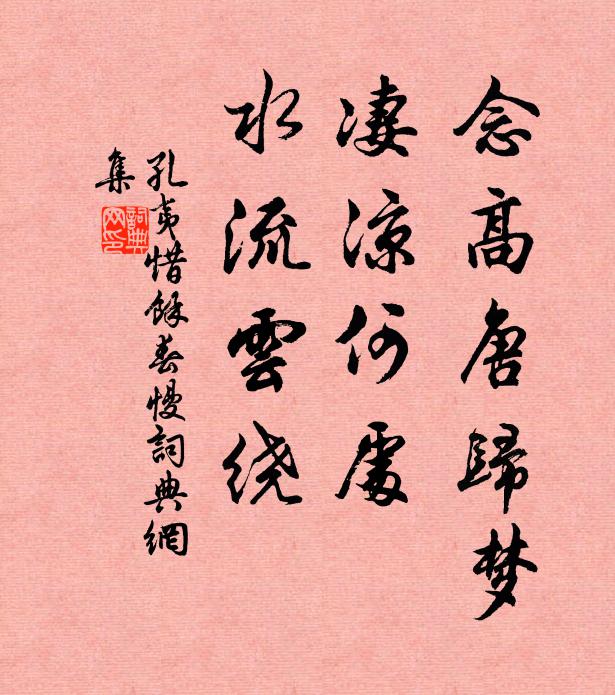 念高唐歸梦
凄涼何處
水流雲绕
孔夷惜餘春慢詞典網
集
詞典
网印